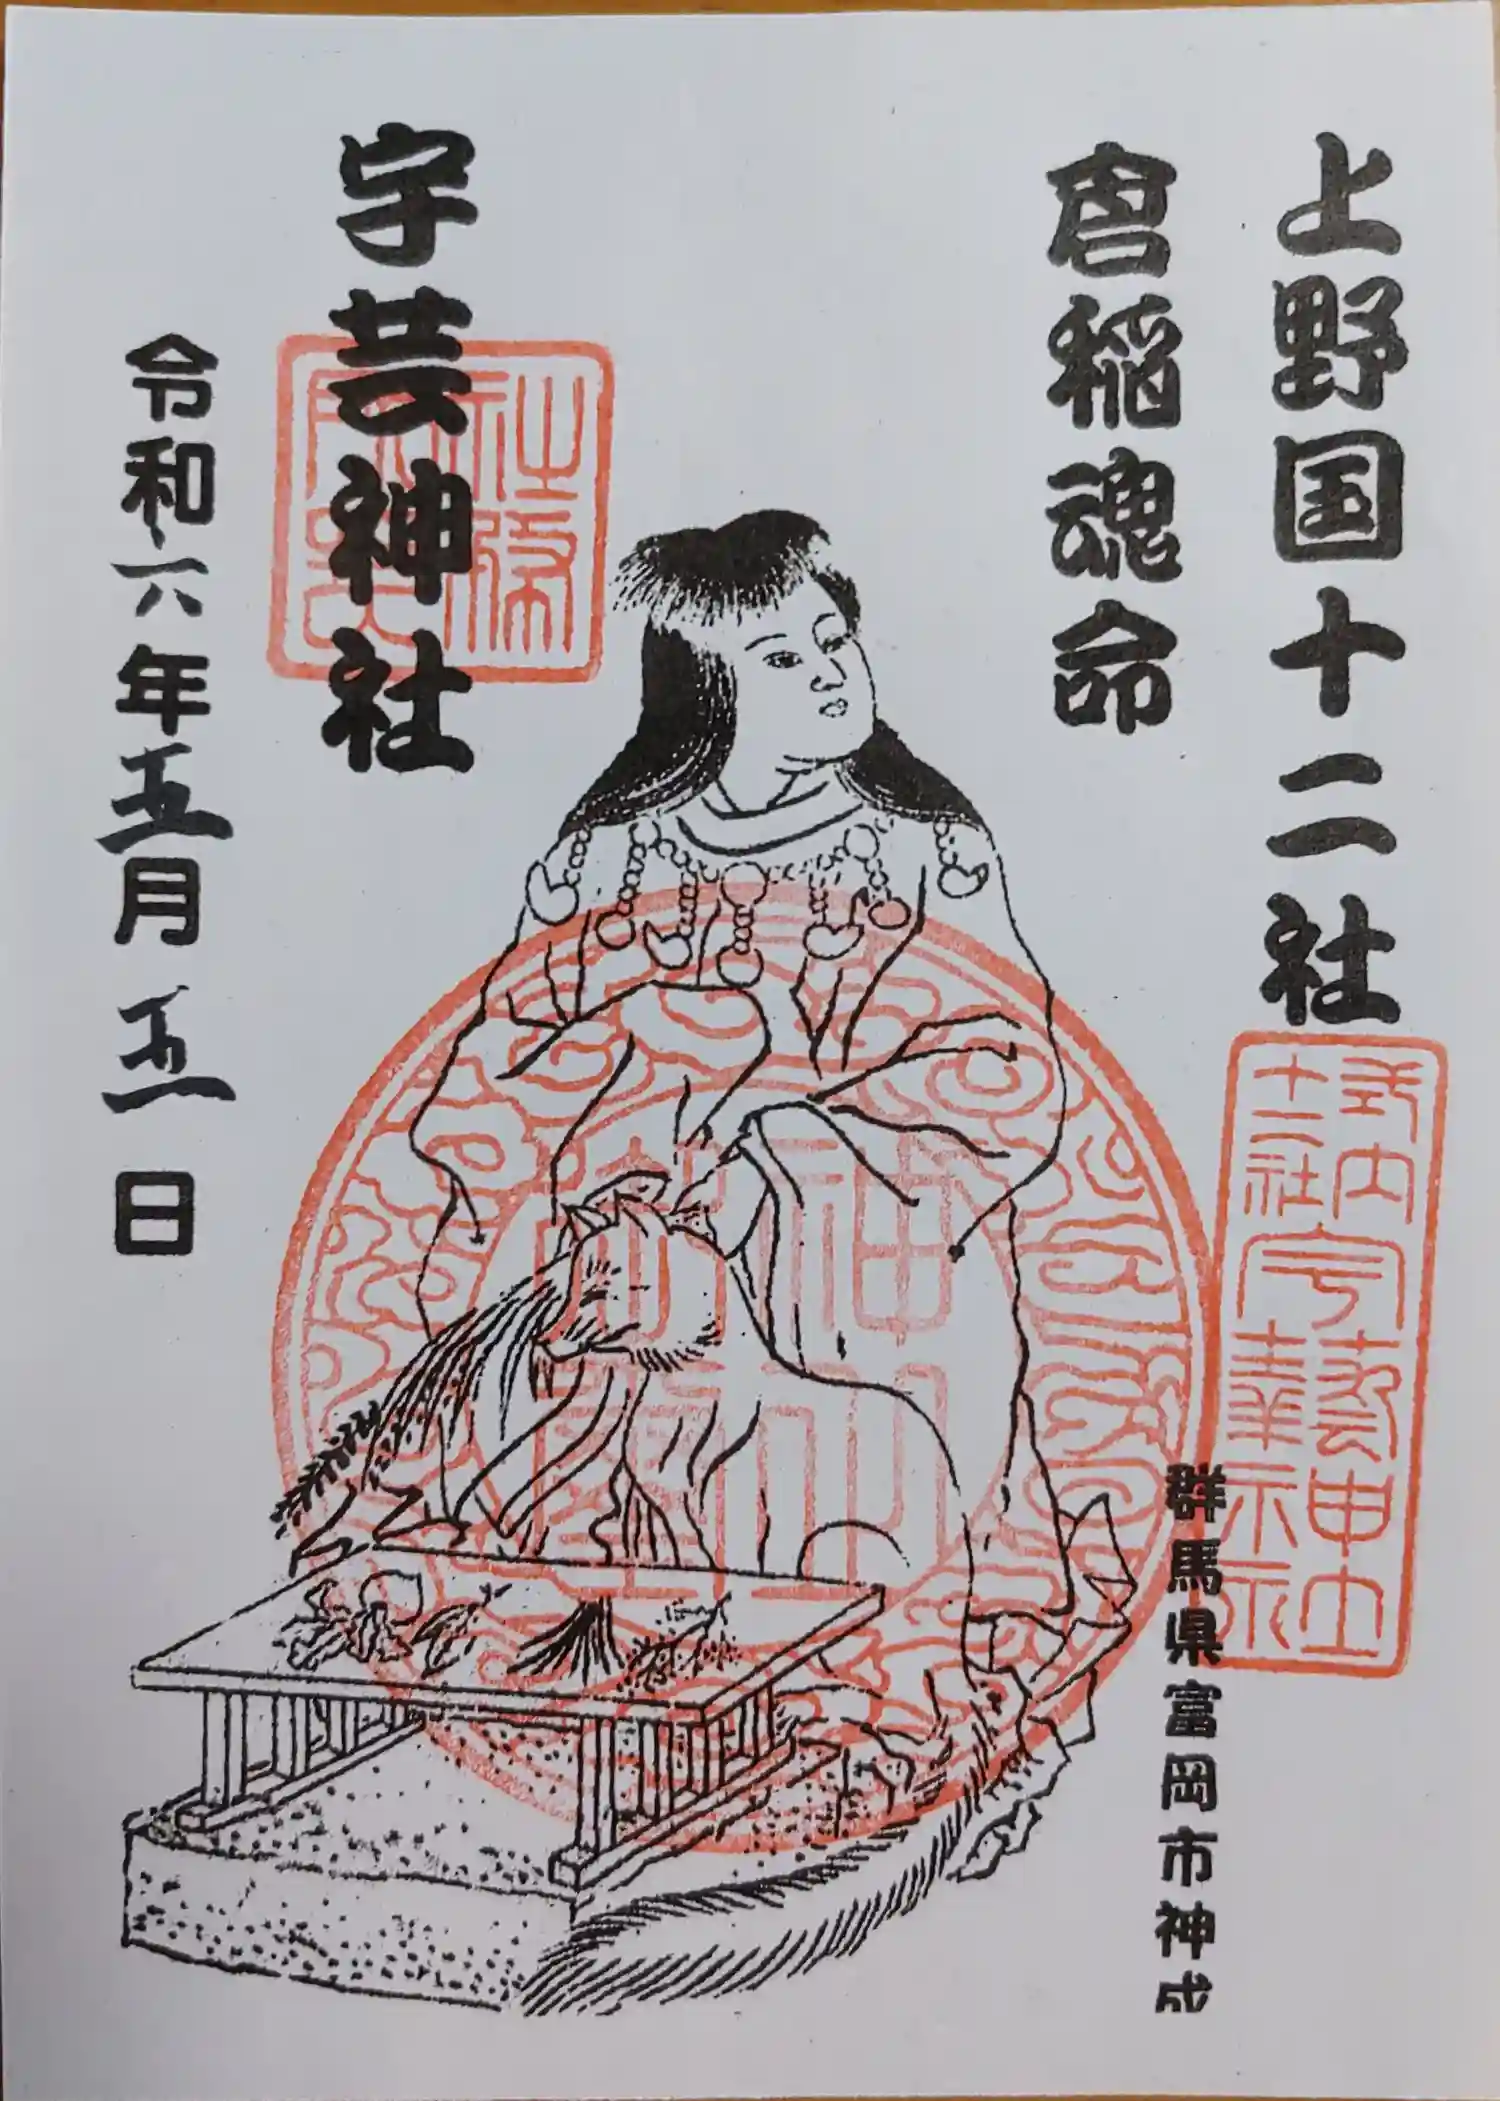 上野国十二社
倉稲魂命
宇芸神社
令和六年五月五日
式内
十二社
宇藝神社
群馬県富岡市神成
社務